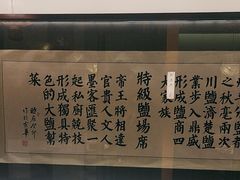 之秋兩次
川鹽濟楚鹽
業步入鼎盛
形成鹽商四
大家族
特級鹽場席
帝王將相達
官貴人文人
墨客匯聚一
起私廚競技
形成獨具特
色的大鹽幫
菜